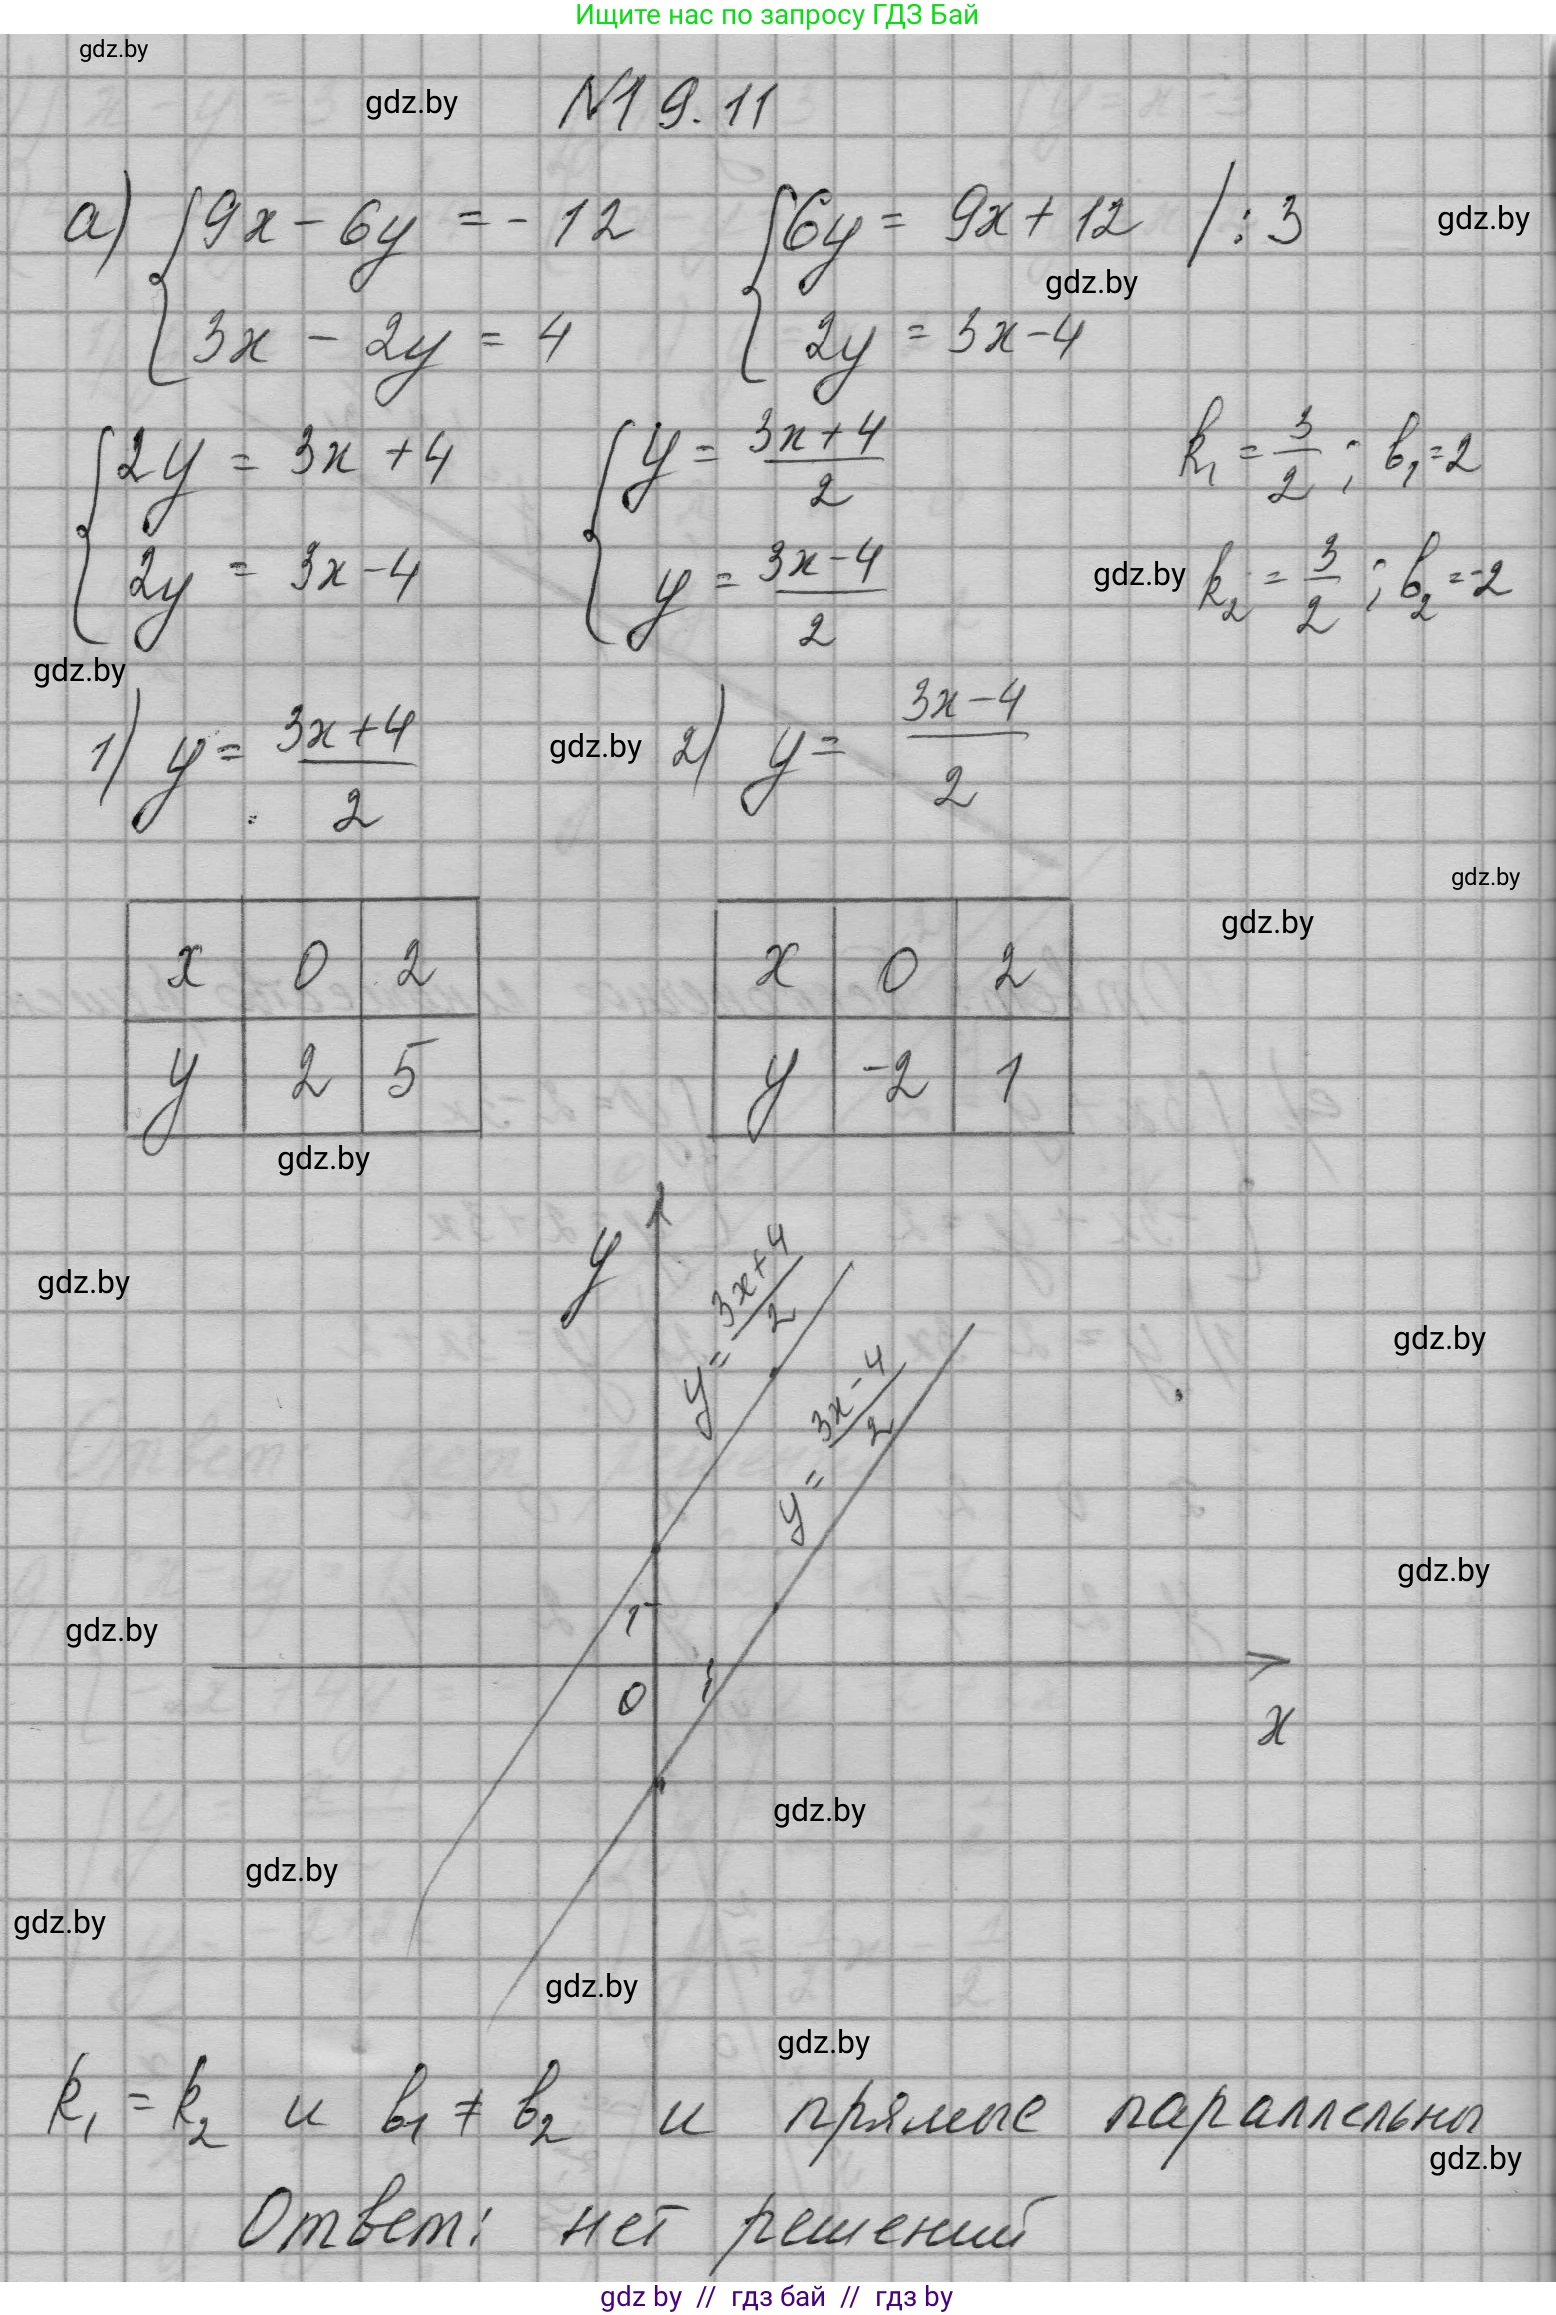 Ищите нас по запросу ГДЗ Бай
gdz.by
gdz.by
№19.11
а) {9x - 6y = - 12 {6y = 9x + 12 / : 3
gdz.by
gdz.by
3x - 2y = 4 2y = 3x - 4
{2y = 3x + 4 {y = (3x + 4)/2 k₁ = 3/2 ; b₁ = 2
2y = 3x - 4 y = (3x - 4)/2 gdz.by k₂ = 3/2 ; b₂ = -2
gdz.by
1) y = (3x + 4)/2 gdz.by 2) y = (3x - 4)/2
gdz.by
gdz.by
x 0 2 x 0 2
y 2 5 y -2 1
gdz.by
y
y = (3x + 4)/2
gdz.by
gdz.by
y = (3x - 4)/2
gdz.by
1
gdz.by
0 1
x
gdz.by
gdz.by
gdz.by
gdz.by
gdz.by
k₁ = k₂ и b₁ ≠ b₂ и прямые параллельны
gdz.by
Ответ: нет решений
gdz by // гдз бай // гдз by